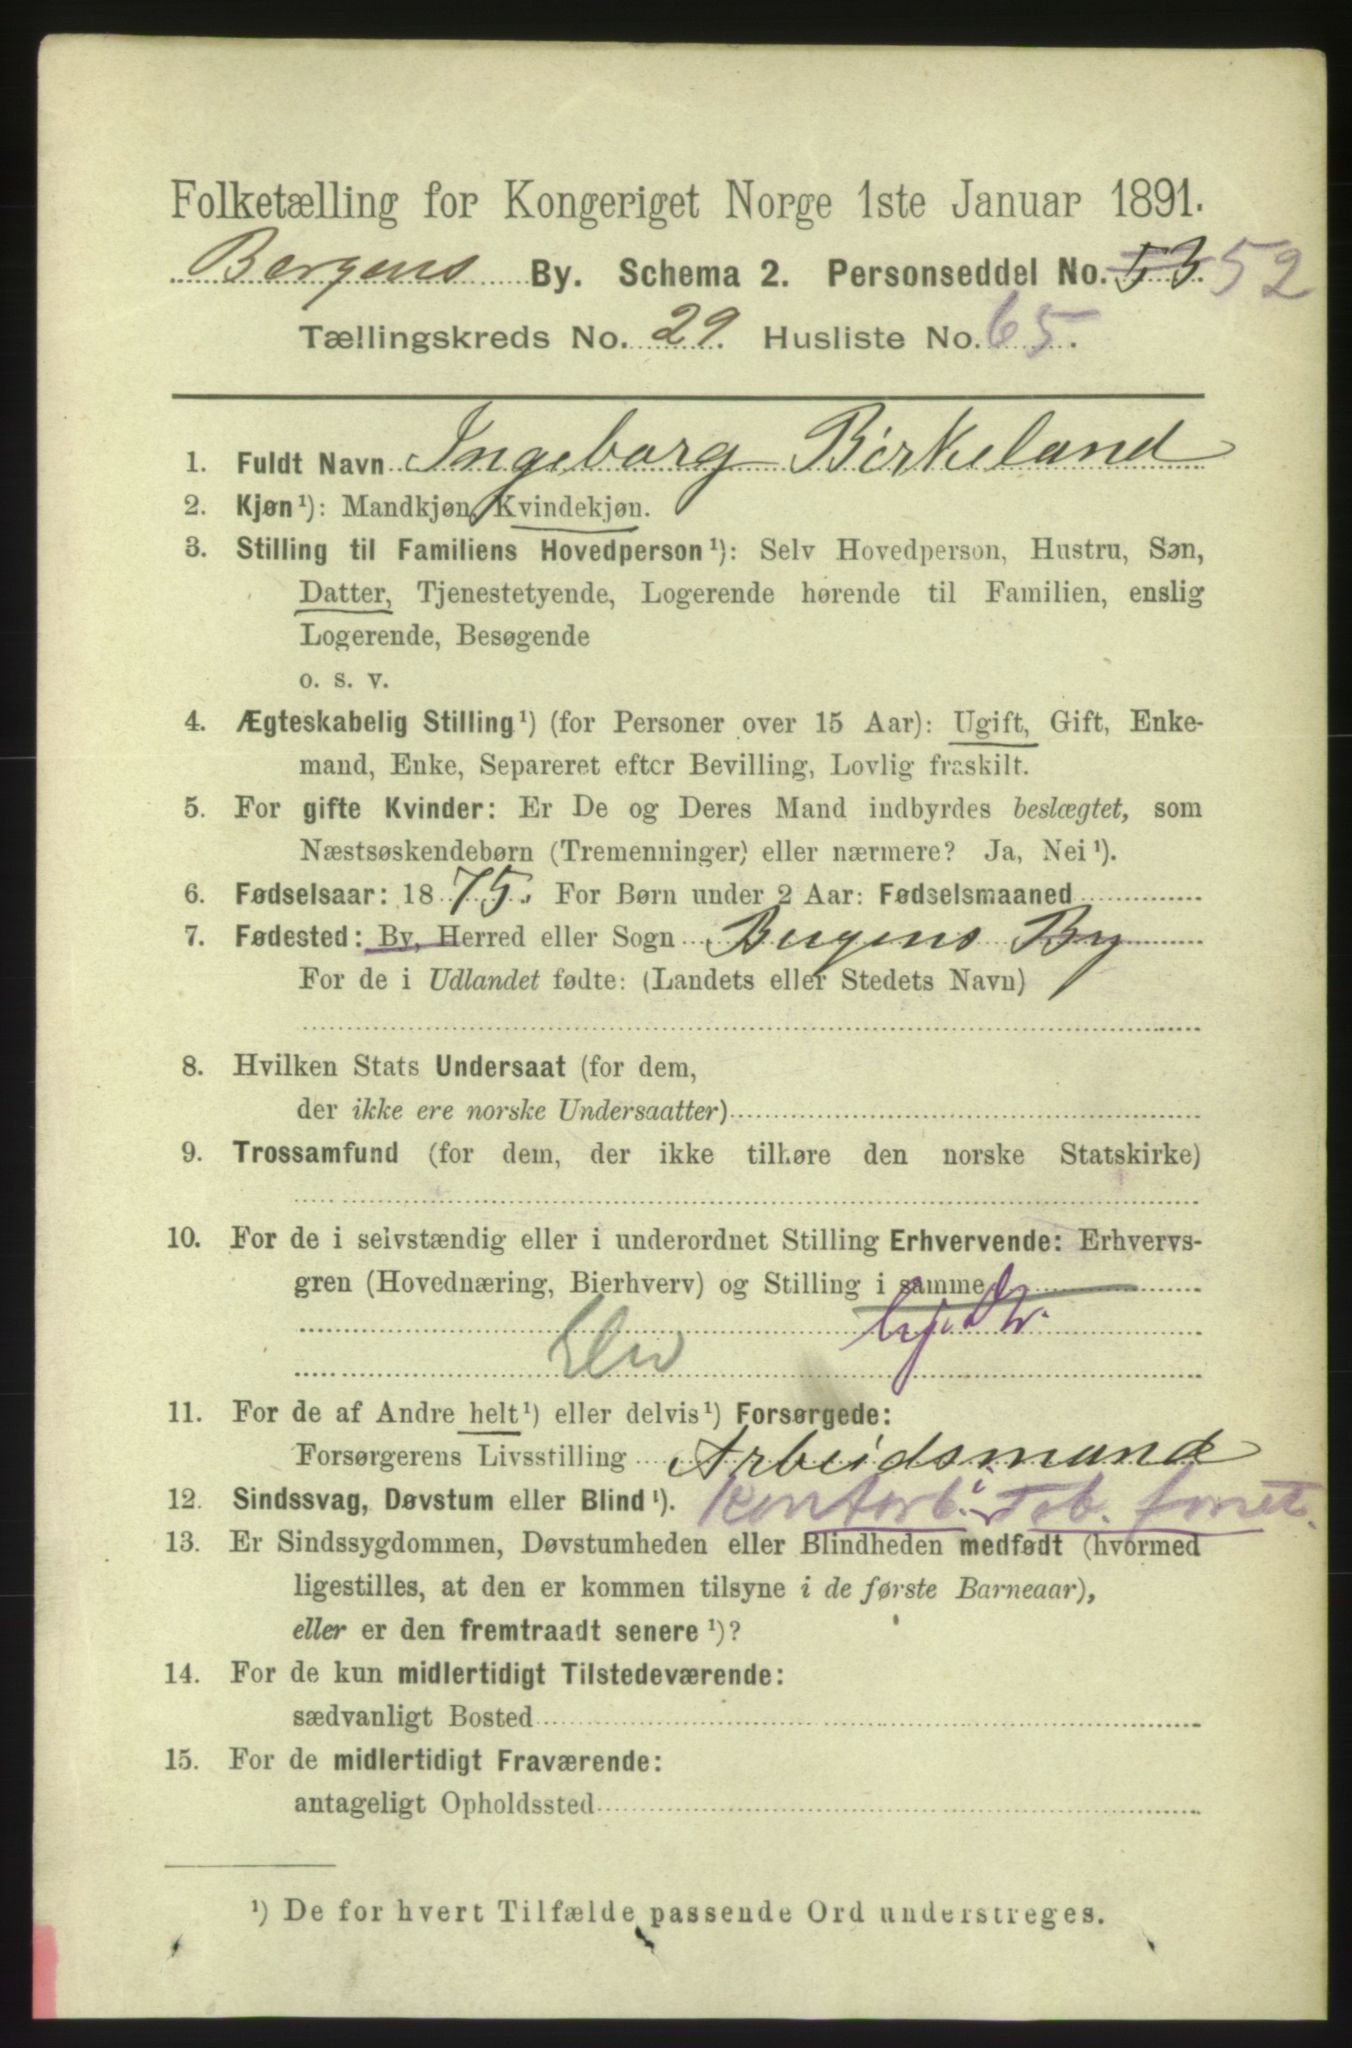 Folketælling for Kongeriget Norge 1ste Januar 1891.
Bergens By. Schema 2. Personseddel No. 53 52
Tællingskreds No. 29. Husliste No. 65.
1. Fuldt Navn Ingeborg Birkeland
2. Kjøn¹): Mandkjøn, Kvindekjøn.
3. Stilling til Familiens Hovedperson¹): Selv Hovedperson, Hustru, Søn,
Datter, Tjenestetyende, Logerende hørende til Familien, enslig
Logerende, Besøgende
o. s. v.
4. Ægteskabelig Stilling¹) (for Personer over 15 Aar): Ugift, Gift, Enke-
mand, Enke, Separeret efter Bevilling, Lovlig fraskilt.
5. For gifte Kvinder: Er De og Deres Mand indbyrdes beslægtet, som
Næstsøskendebørn (Tremenninger) eller nærmere? Ja, Nei¹).
6. Fødselsaar: 1875. For Børn under 2 Aar: Fødselsmaaned
7. Fødested: By, Herred eller Sogn Bergens By
For de i Udlandet fødte: (Landets eller Stedets Navn)
8. Hvilken Stats Undersaat (for dem,
der ikke ere norske Undersaatter)
9. Trossamfund (for dem, der ikke tilhøre den norske Statskirke)
10. For de i selvstændig eller i underordnet Stilling Erhvervende: Erhvervs-
gren (Hovednæring, Bierhverv) og Stilling i samme
11. For de af Andre helt¹) eller delvis¹) Forsørgede:
Forsørgerens Livsstilling Arbeidsmand
12. Sindssvag, Døvstum eller Blind¹). Kontorb. i Tob. forret.
13. Er Sindssygdommen, Døvstumheden eller Blindheden medfødt (hvormed
ligestilles, at den er kommen tilsyne i de første Barneaar),
eller er den fremtraadt senere¹)?
14. For de kun midlertidigt Tilstedeværende:
sædvanligt Bosted
15. For de midlertidigt Fraværende:
antageligt Opholdssted
¹) De for hvert Tilfælde passende Ord understreges.